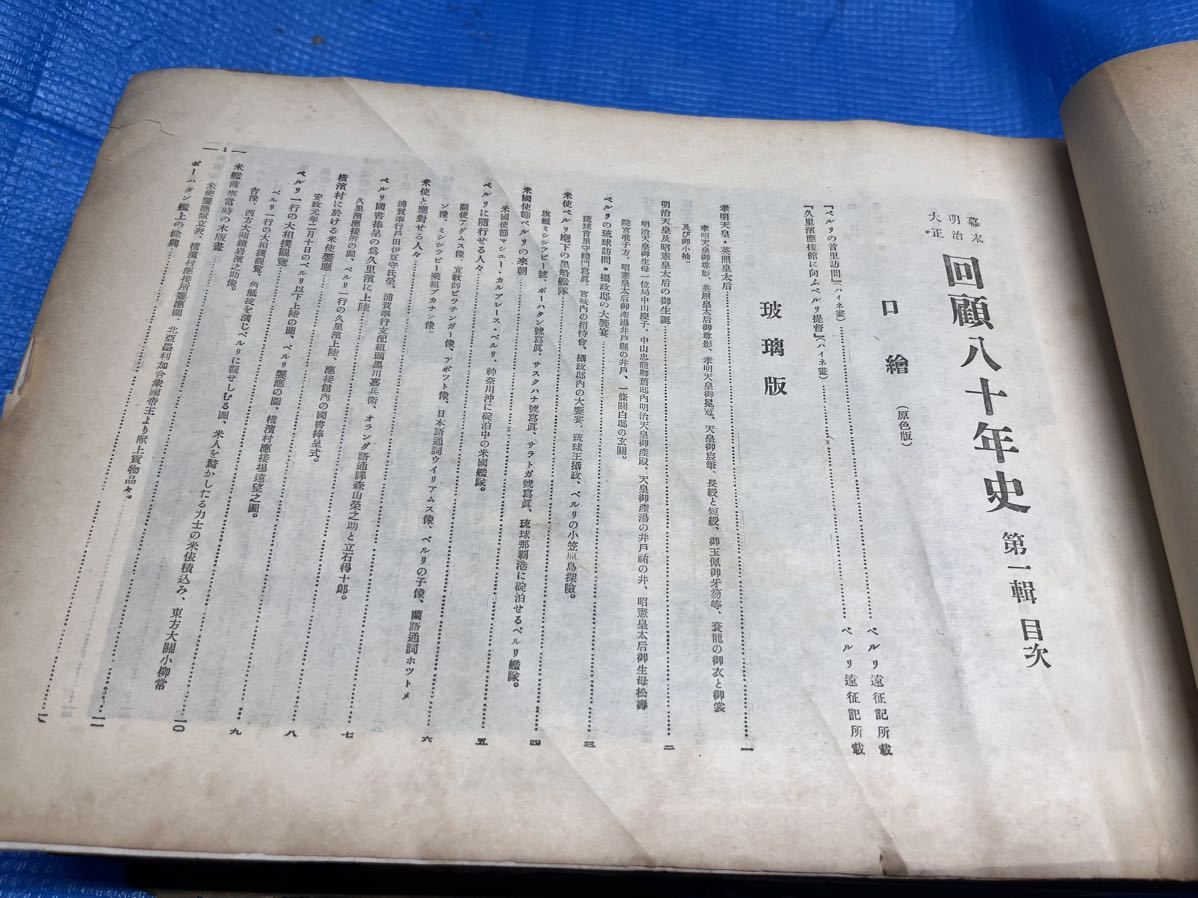 幕末
明治
大正
回顧八十年史 第一輯 目次
口繪 (原色版)
『ペルリの首里訪問』(ハイネ畫)……ペルリ遠征記所載
『久里濱應接館に向ふペルリ提督』(ハイネ畫)……ペルリ遠征記所載
玻璃版
孝明天皇・英照皇太后……一
孝明天皇御尊影、英照皇太后御尊影、孝明天皇御冕冠、天皇御宸筆、長綬と短綬、御玉佩御牙笏等、袞龍の御衣と御裳
及び御小袖。
明治天皇及昭憲皇太后の御生誕……二
明治天皇御生母一位局中山慶子、中山忠能卿舊邸內明治天皇御產殿、天皇御產湯の井戶祐の井、昭憲皇太后御生母松壽
院宮准子方、昭憲皇太后御產湯井戶縣の井戶、一條關白邸の玄關。
ペルリの琉球訪問・攝政邸の大饗宴……三
琉球首里守禮門寫眞、宮城內の招待會、攝政邸內の大饗宴、琉球王攝政、ペルリの小笠原島探險。
米使ペルリ麾下の黑船艦隊……四
旗艦ミシシッピー號、ポーハタン號寫眞、サスクハナ號寫眞、サラトガ號寫眞、琉球那覇港に碇泊せるペルリ艦隊。
米國使節ペルリの來朝……五
米國使節マシュー・カルブレース・ペルリ、神奈川沖に碇泊中の米國艦隊。
ペルリに隨行せる人々……六
副使アダムス像、宣敎師ビッテンガー像、アボット像、日本語通詞ウイリアムス像、ペルリの子像、蘭語通詞ホットメ
ン像、ミシシッピー乘組ブカナン像。
米使と應對せる人々……七
浦賀奉行戶田伊豆守氏榮、浦賀奉行支配組頭黑川嘉兵衞、オランダ語通譯森山榮之助と立石得十郎。
ペルリ國書捧呈の爲久里濱に上陸……八
久里濱應接所の圖、ペルリ一行の久里濱上陸、應接館內の國書捧呈式。
橫濱村に於ける米使饗應……九
安政元年二月十日のペルリ以下上陸の圖、ペルリ饗應の圖、橫濱村應接場遠望之圖。
ペルリ一行の大相撲觀覽……一〇
ペルリ一行の大相撲觀覽、角觝技を演じペルリに觀せしむる圖、米人を驚かしたる力士の米俵積込み、東方大關小柳常
吉像、西方大關鏡岩濱之助像。
米艦渡來當時の木版畫……一一
米使饗應獻立表、橫濱村應接所饗應圖、北亞墨利加合衆國帝王より献上貢物品々。
ポーハタン艦上の餘興……一二
一